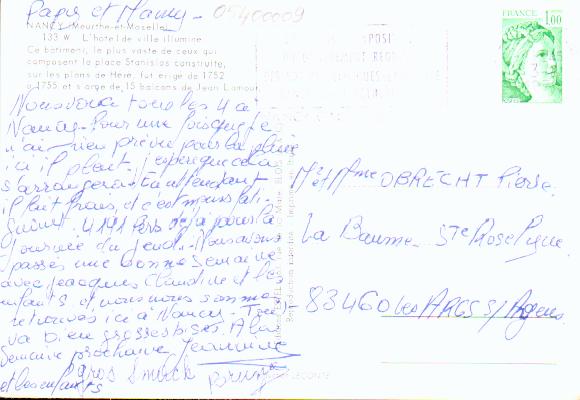 Papy et Mamy - 05400009
NANCY (Meurthe-et-Moselle)
133 W L'hotel de ville illumine
Ce bâtiment, le plus vaste de ceux qui
composent la place Stanislas construite,
sur les plans de Héré, fut érigé de 1752
à 1755 et s'orge de 15 balcons de Jean Lamour
FRANCE
1,00
Nous voilà tous les 4 à
Nancy. Pour une fois que je
n'ai rien prévu pour la pluie
ici il pleut, j'espère que cela
s'arrangera. En attendant
il fait frais, et c'est moins fati-
journée du jeudi. Nous avons
passés une bonne semaine
avec Jacques Claudine et les
enfants et nous nous sommes
retrouvés ici à Nancy. Tout
va bien grosses bises. A la
semaine prochaine Jeannine
et les enfants
gros smack
Mr et Mme OBRECHT Pierre
La Baume Ste Roseline
83460 les ARCS S/Argens